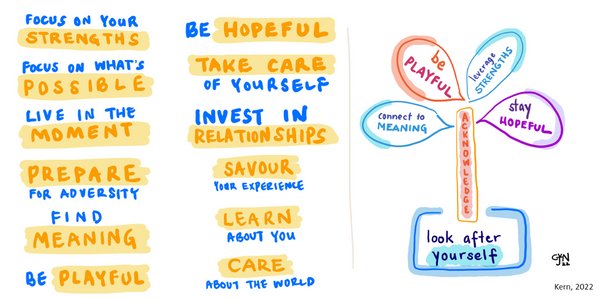 FOCUS ON YOUR
STRENGTHS
FOCUS ON WHAT'S
POSSIBLE
LIVE IN THE
MOMENT
PREPARE
FOR ADVERSITY
FIND
MEANING
BE PLAYFUL
BE HOPEFUL
TAKE CARE
OF YOURSELF
INVEST IN
RELATIONSHIPS
SAVOUR
YOUR EXPERIENCE
LEARN
ABOUT YOU
CARE
ABOUT THE WORLD
be
PLAYFUL
leverage
STRENGTHS
connect to
MEANING
stay
HOPEFUL
ACKNOWLEDGE
look after
yourself
Kern, 2022